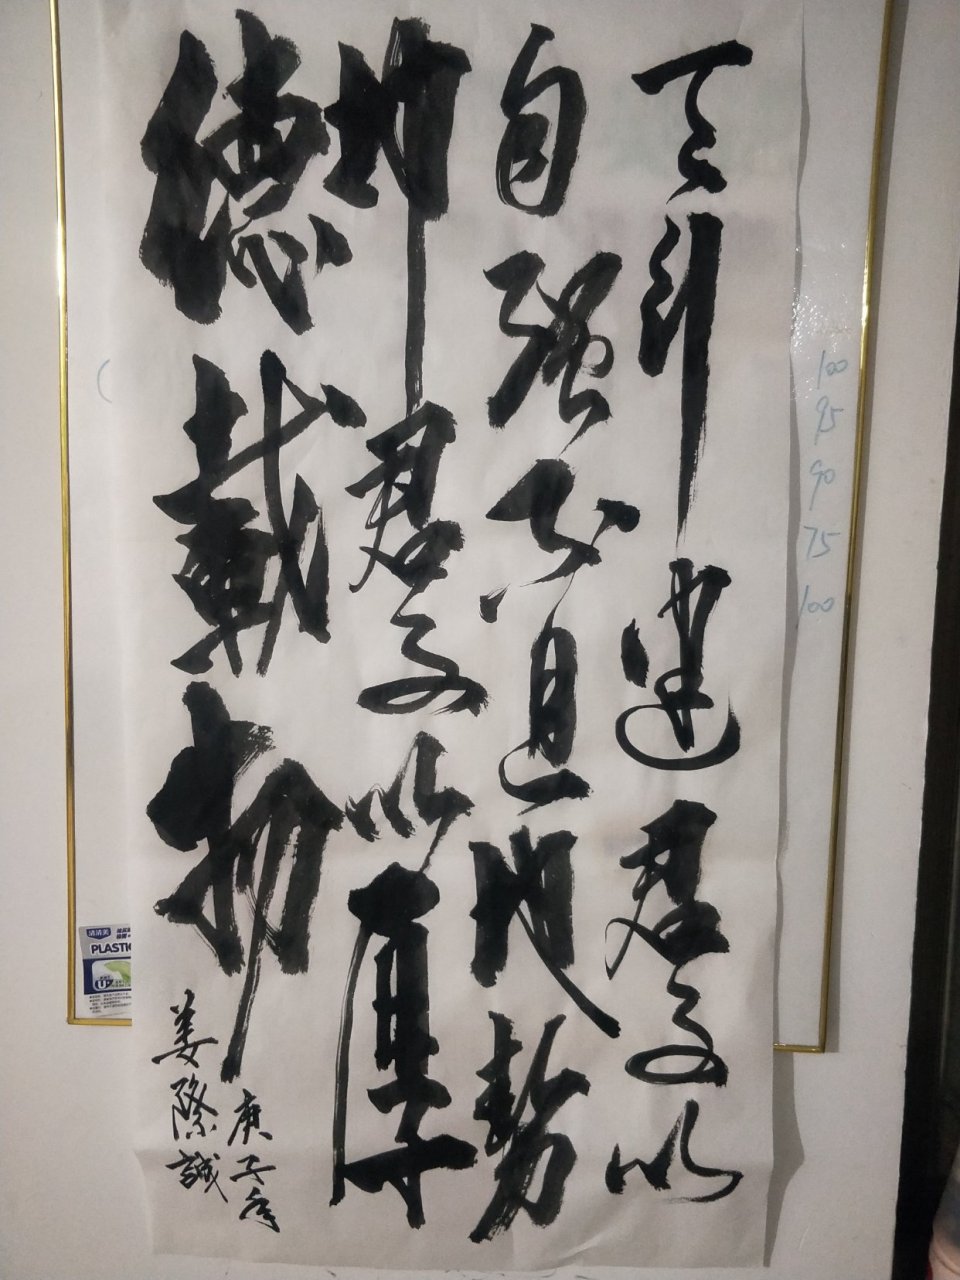 天行健君子以
自强不息地勢
坤君子以厚
德載物
庚子年
姜際誠
100
95
90
75
100
PLASTIC